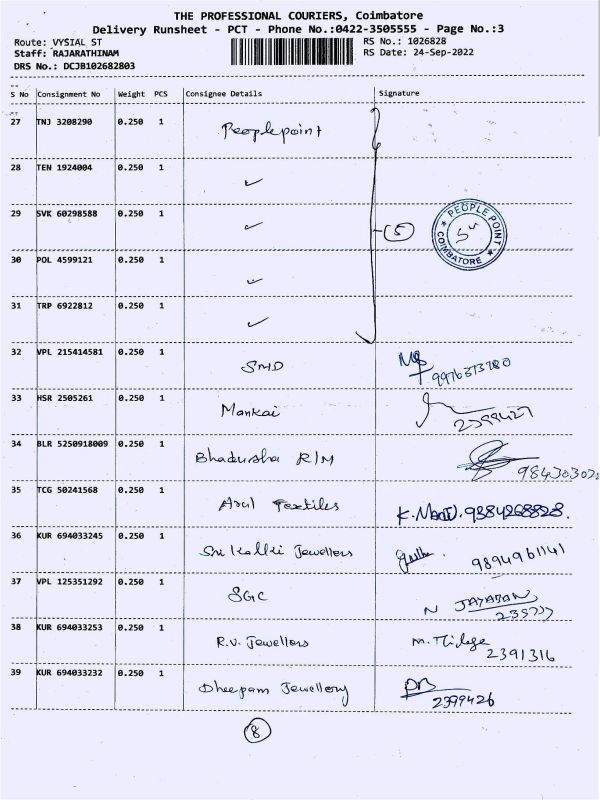 THE PROFESSIONAL COURIERS, Coimbatore
Delivery Runsheet - PCT - Phone No.:0422-3505555 - Page No.:3
Route: VYSIAL ST RS No.: 1026828
Staff: RAJARATHINAM RS Date: 24-Sep-2022
DRS No.: DCJB102682803
S No Consignment No Weight PCS Consignee Details Signature
27 TNJ 3208290 0.250 1 Peoplepoint
28 TEN 1924004 0.250 1 ✓
29 SVK 60298588 0.250 1 ✓ 5 PEOPLE POINT COIMBATORE
30 POL 4599121 0.250 1 ✓
31 TRP 6922812 0.250 1 ✓
32 VPL 215414581 0.250 1 SMD
33 HSR 2505261 0.250 1 Mankai 2399427
34 BLR 5250918009 0.250 1 Bhadursha R/M
35 TCG 50241568 0.250 1 Arul Textiles 9384268828.
36 KUR 694033245 0.250 1 Sri Kalki Jewellers 9894961141
37 VPL 125351292 0.250 1 SGC N JAYARAN
38 KUR 694033253 0.250 1 R.V. Jewellers 2391316
39 KUR 694033232 0.250 1 Dheepam Jewellery 2399426
8